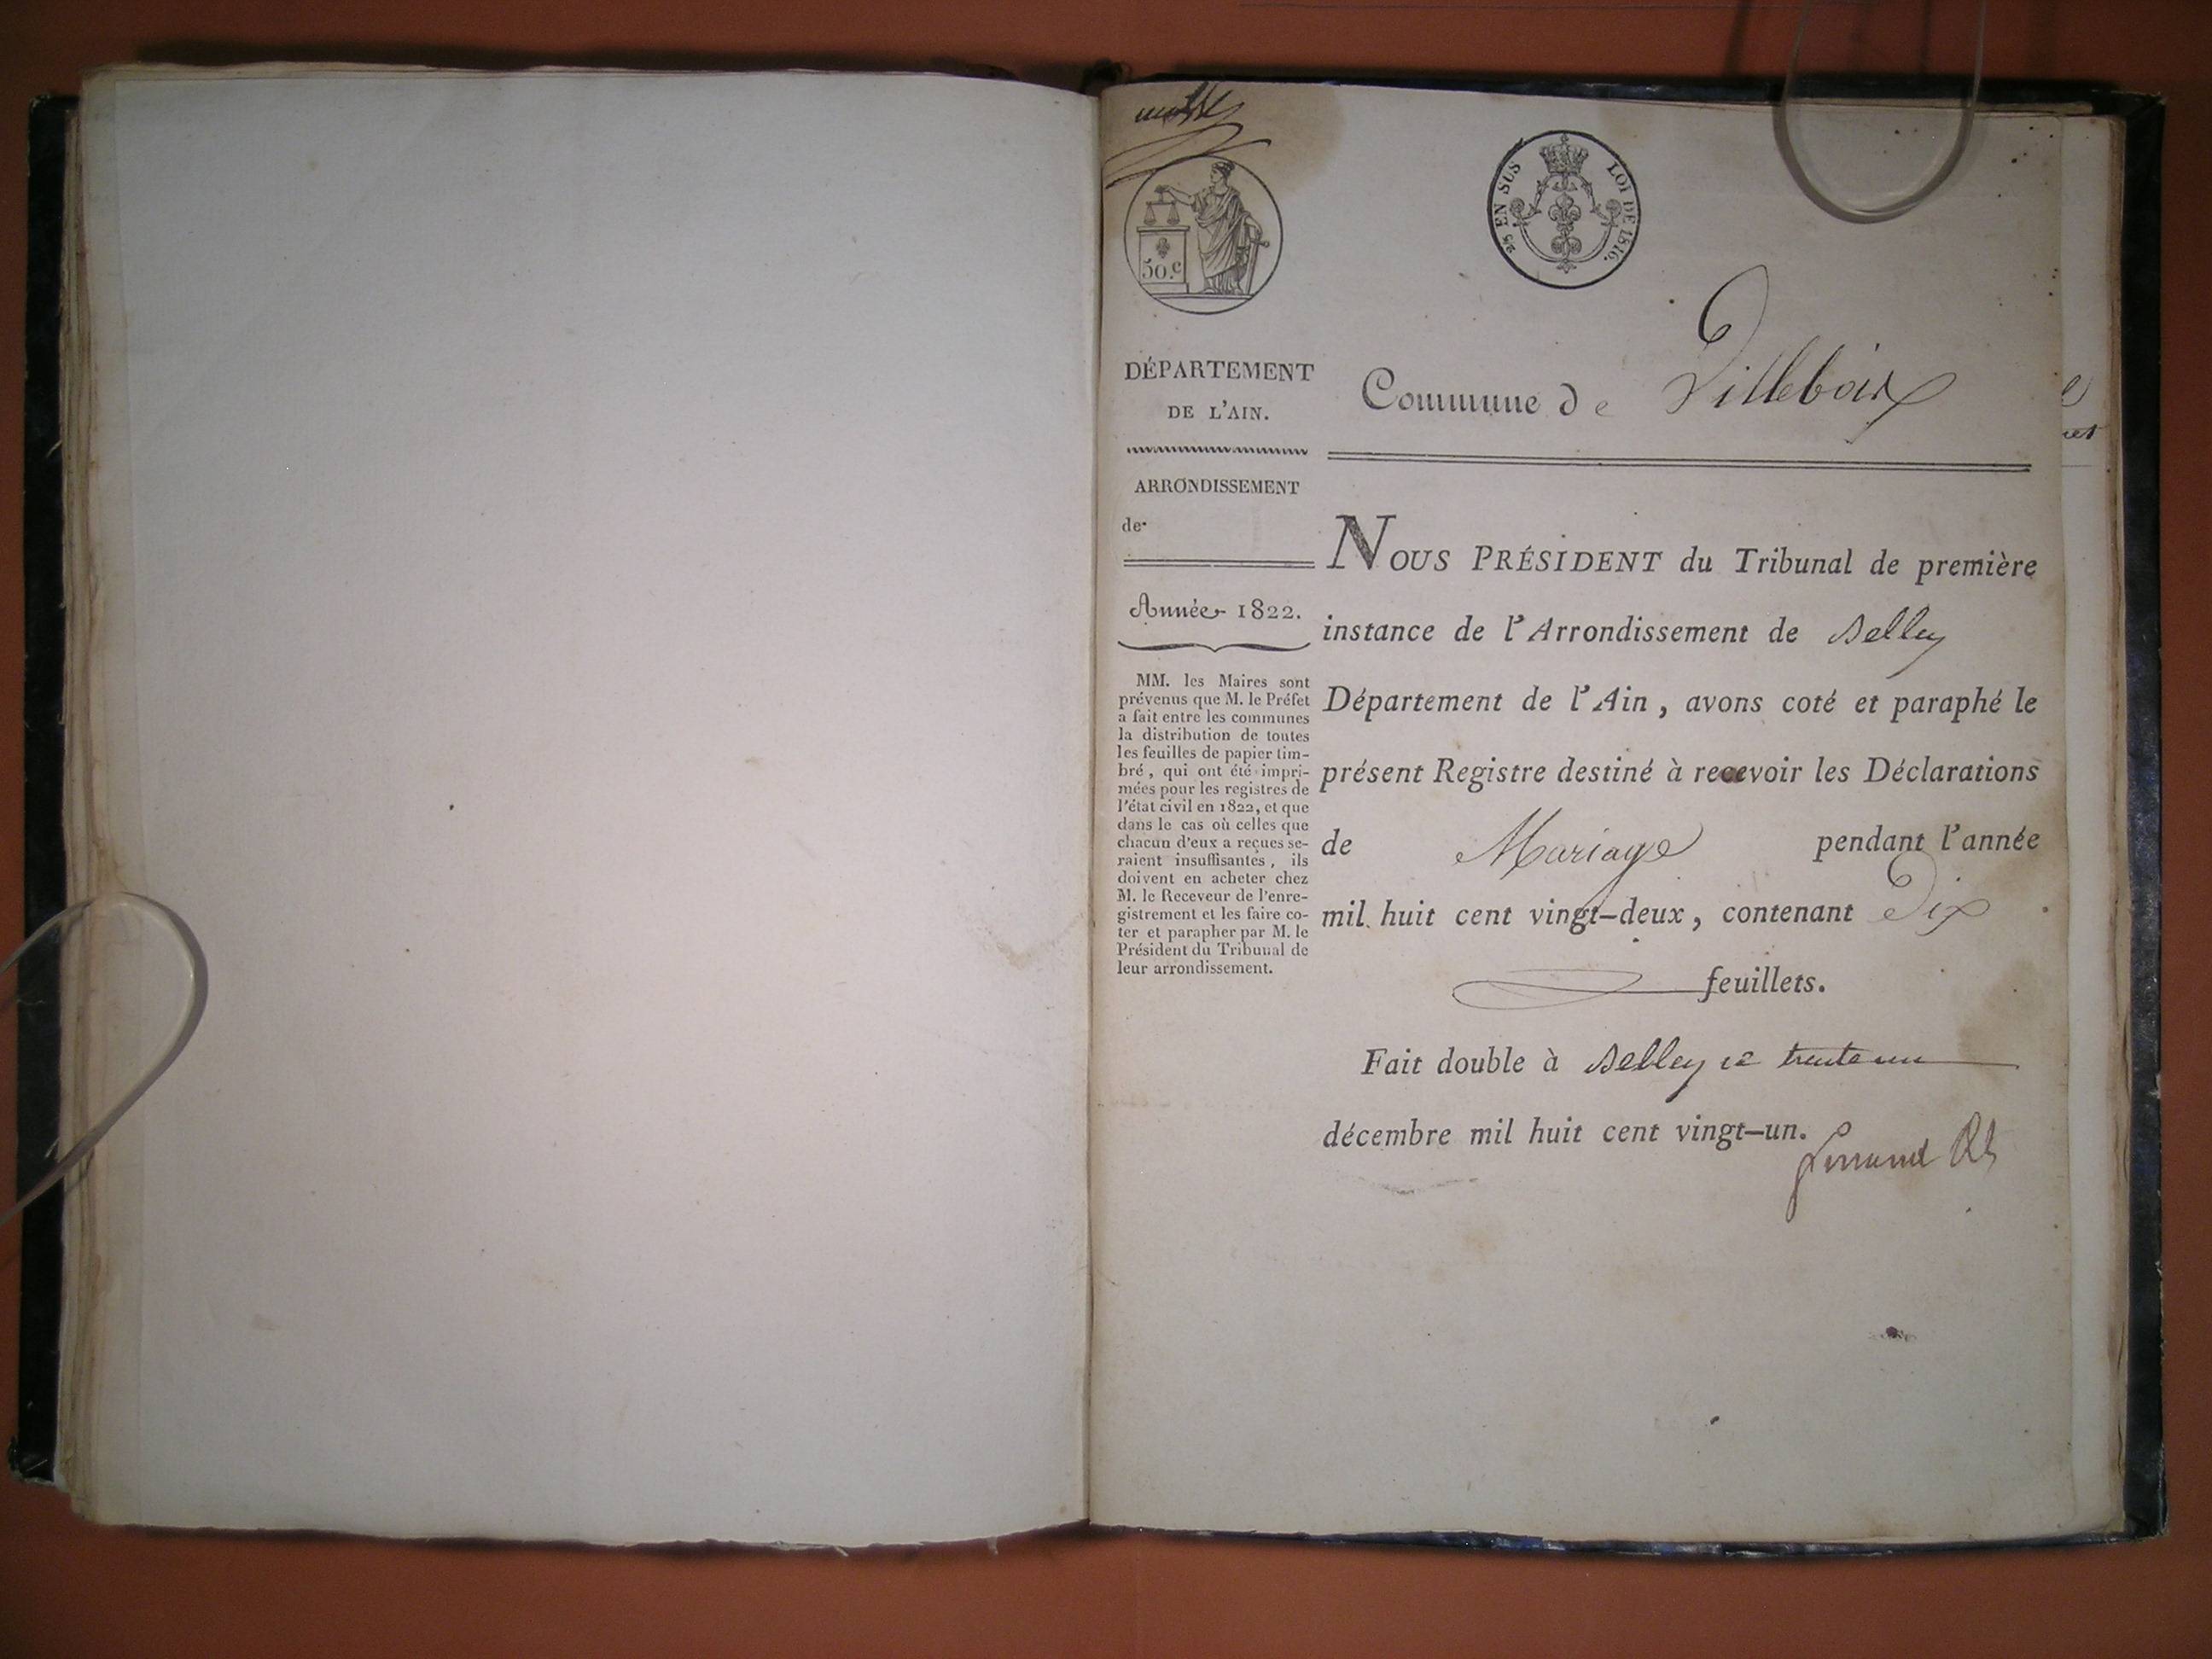 50.c
25 EN SUS LOI DE 1816.
DÉPARTEMENT
DE L'AIN.
Commune de Villebois
ARRONDISSEMENT
de
Année 1822.
MM. les Maires sont
prévenus que M. le Préfet
a fait entre les communes
la distribution de toutes
les feuilles de papier tim-
bré, qui ont été impri-
mées pour les registres de
l'état civil en 1822, et que
dans le cas où celles que
chacun d'eux a reçues se-
raient insuffisantes, ils
doivent en acheter chez
M. le Receveur de l'enre-
gistrement et les faire co-
ter et parapher par M. le
Président du Tribunal de
leur arrondissement.
NOUS PRÉSIDENT du Tribunal de première
instance de l'Arrondissement de Belley
Département de l'Ain, avons coté et paraphé le
présent Registre destiné à recevoir les Déclarations
de Mariage pendant l'année
mil huit cent vingt-deux, contenant Dix
feuillets.
Fait double à Belley le trente un
décembre mil huit cent vingt-un.